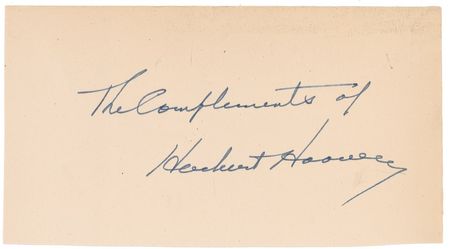 The Complements of
Herbert Hoover